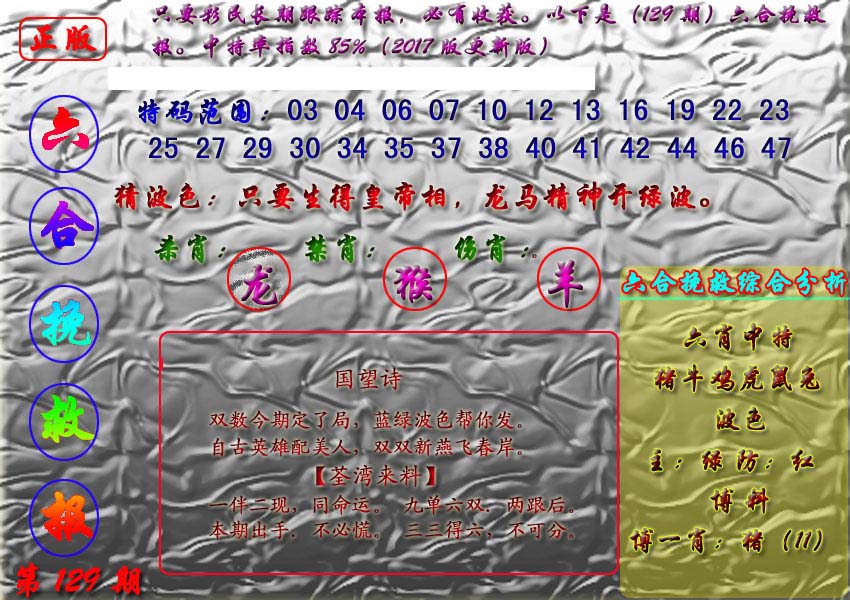 正版
只要彩民长期跟踪本报，必有收获。以下是（129期）六合挽救
报。中特率指数85%（2017版更新版）
六合挽救报
第129期
特码范围：03 04 06 07 10 12 13 16 19 22 23
25 27 29 30 34 35 37 38 40 41 42 44 46 47
猜波色：只要生得皇帝相，龙马精神开绿波。
杀肖：龙 禁肖：猴 伤肖：羊
国望诗
双数今期定了局，蓝绿波色帮你发。
自古英雄配美人，双双新燕飞春岸。
【荃湾来料】
一伴二现，同命运。 九单六双．两跟后。
本期出手．不必慌。 三三得六，不可分。
六合挽救综合分析
六肖中特
猪牛鸡虎鼠兔
波色
主：绿 防：红
博料
博一肖：猪（11）